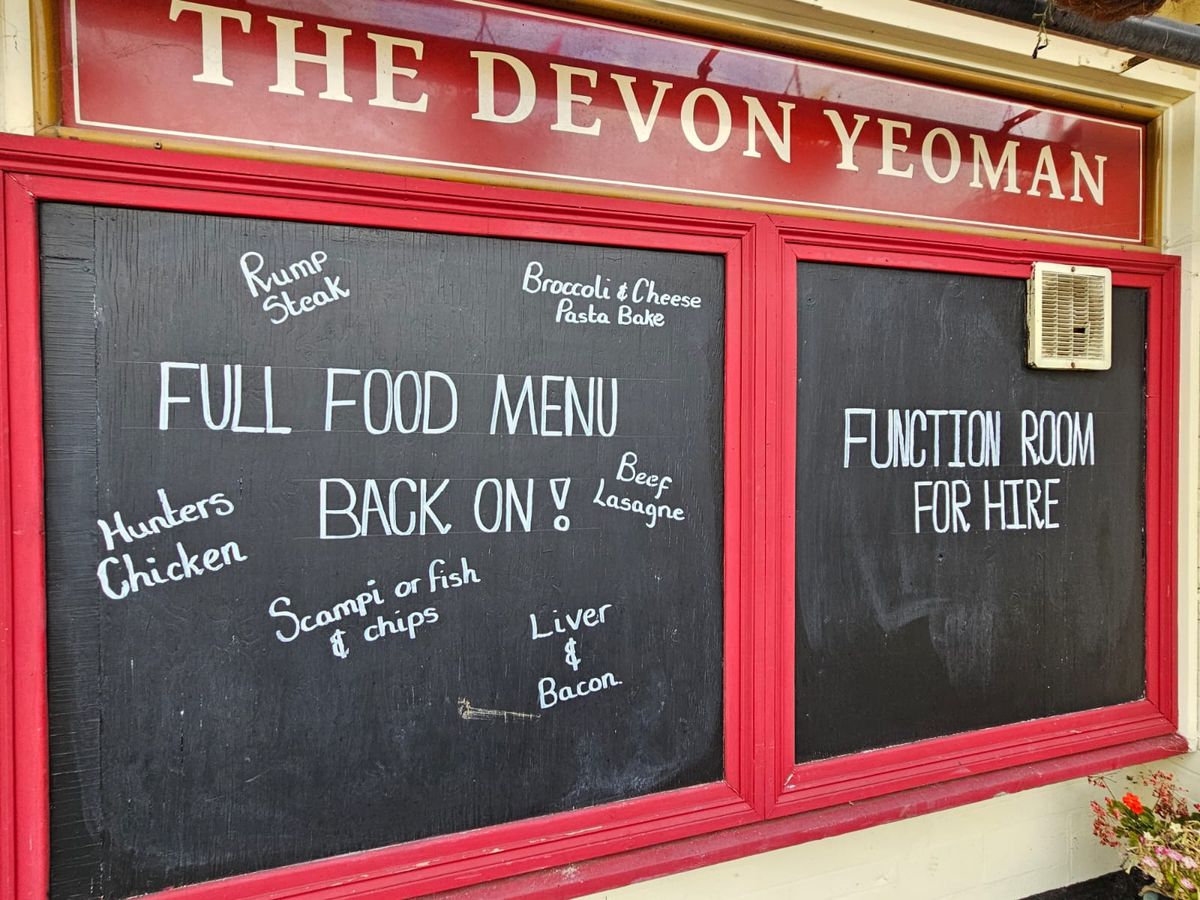 THE DEVON YEOMAN
Rump
Steak
Broccoli & Cheese
Pasta Bake
FULL FOOD MENU
BACK ON!
Beef
Lasagne
Hunters
Chicken
Scampi or fish
& chips
Liver
&
Bacon.
FUNCTION ROOM
FOR HIRE